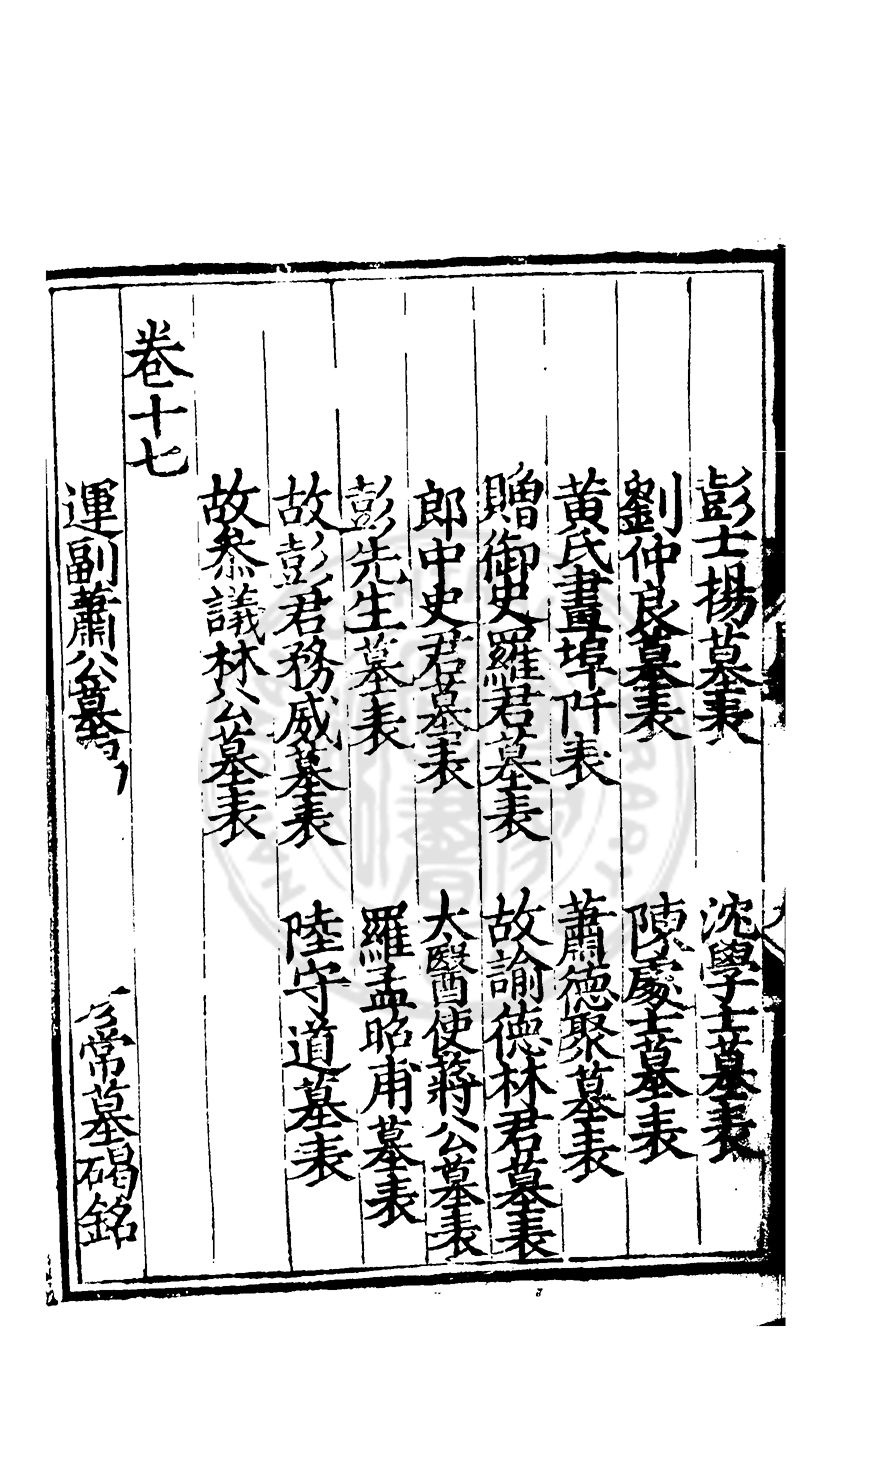 彭士揚墓表　沈學士墓表
劉仲良墓表　陳處士墓表
黃氏畫埠阡表　蕭德聚墓表
贈御史羅君墓表　故諭德林君墓表
郎中史君墓表　大醫使蔣公墓表
彭先生墓表　羅孟昭甫墓表
故彭君務威墓表　陸守道墓表
故叅議林公墓表
卷十七
運副蕭公墓　常墓碣銘